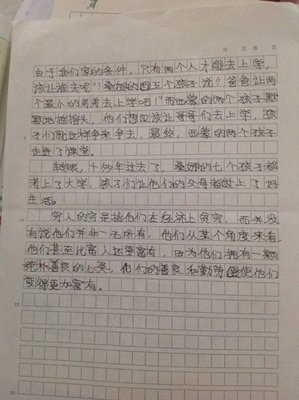 由于我们家的条件，只有两个人才能去上学，
该让谁去呢？”桑娜的五个孩子说：“爸爸让两
个最小的弟弟去上学吧！”而西蒙的两个孩子默
默地摇摇头，他们想应该让哥哥们去上学，孩
子们就这样争来争去，最终，西蒙的两个孩子
走进了课堂。
转眼，十多年过去了，桑娜的七个孩子都
考上了大学，孩子们让他们的父母都过上了好
生活。
穷人的穷是指他们在经济上贫穷，而并没
有说他们并非一无所有，他们从某个角度来看，
他们甚至比富人还要富有，因为他们拥有一颗
纯朴善良的心灵，他们的善良和勤劳使他们
变得更加富有。